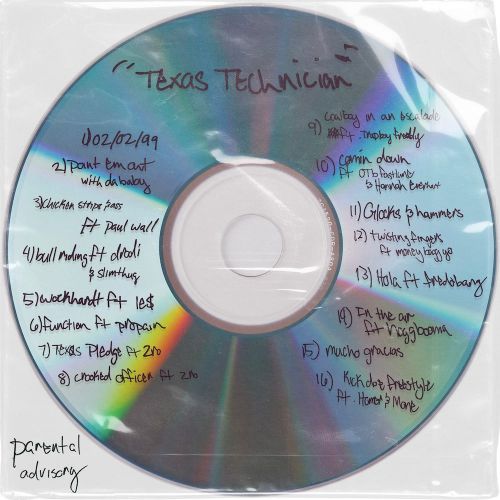 "Texas Technician"
1) 02/02/99
2) paint em out
with dababy
3) chicken strips pass
ft paul wall
4) bull riding ft drodi
& slim thug
5) wockhardt ft le$
6) function ft propain
7) Texas Pledge ft Zro
8) crooked officer ft zro
9) cowboy in an escalade
ft. Trapboy Freddy
10) comin down
ft OTB Fastlane
& Hannah Everhart
11) Glocks & hammers
12) twisting fingers
ft money bag yo
13) Hola ft fredobang
14) In the air
ft hoggbooma
15) mucho gracias
16) Kickdoe freestyle
ft. Homer & Mane
parental
advisory